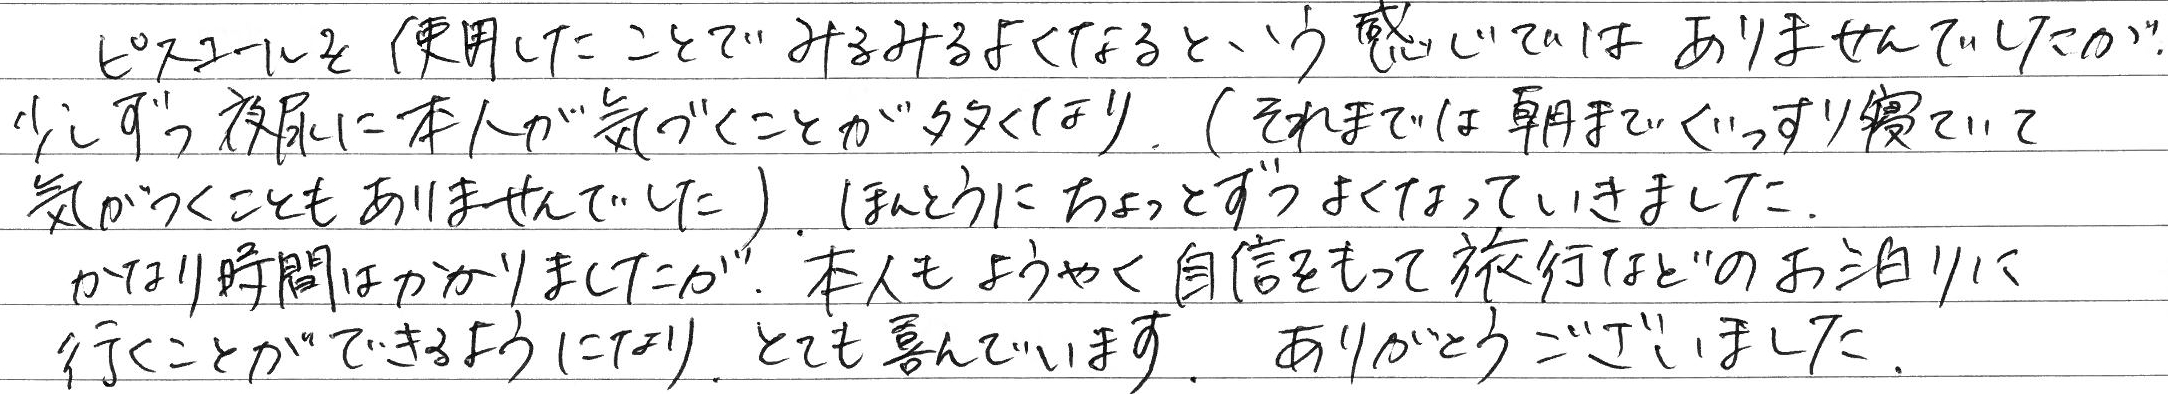 ピスコールを使用したことでみるみるよくなるという感じではありませんでしたが、
少しずつ夜尿に本人が気づくことが多くなり、(それまでは朝までぐっすり寝ていて
気がつくこともありませんでした)、ほんとうにちょっとずつよくなっていきました。
かなり時間はかかりましたが、本人もようやく自信をもって旅行などのお泊りに
行くことができるようになり、とても喜んでいます。 ありがとうございました。